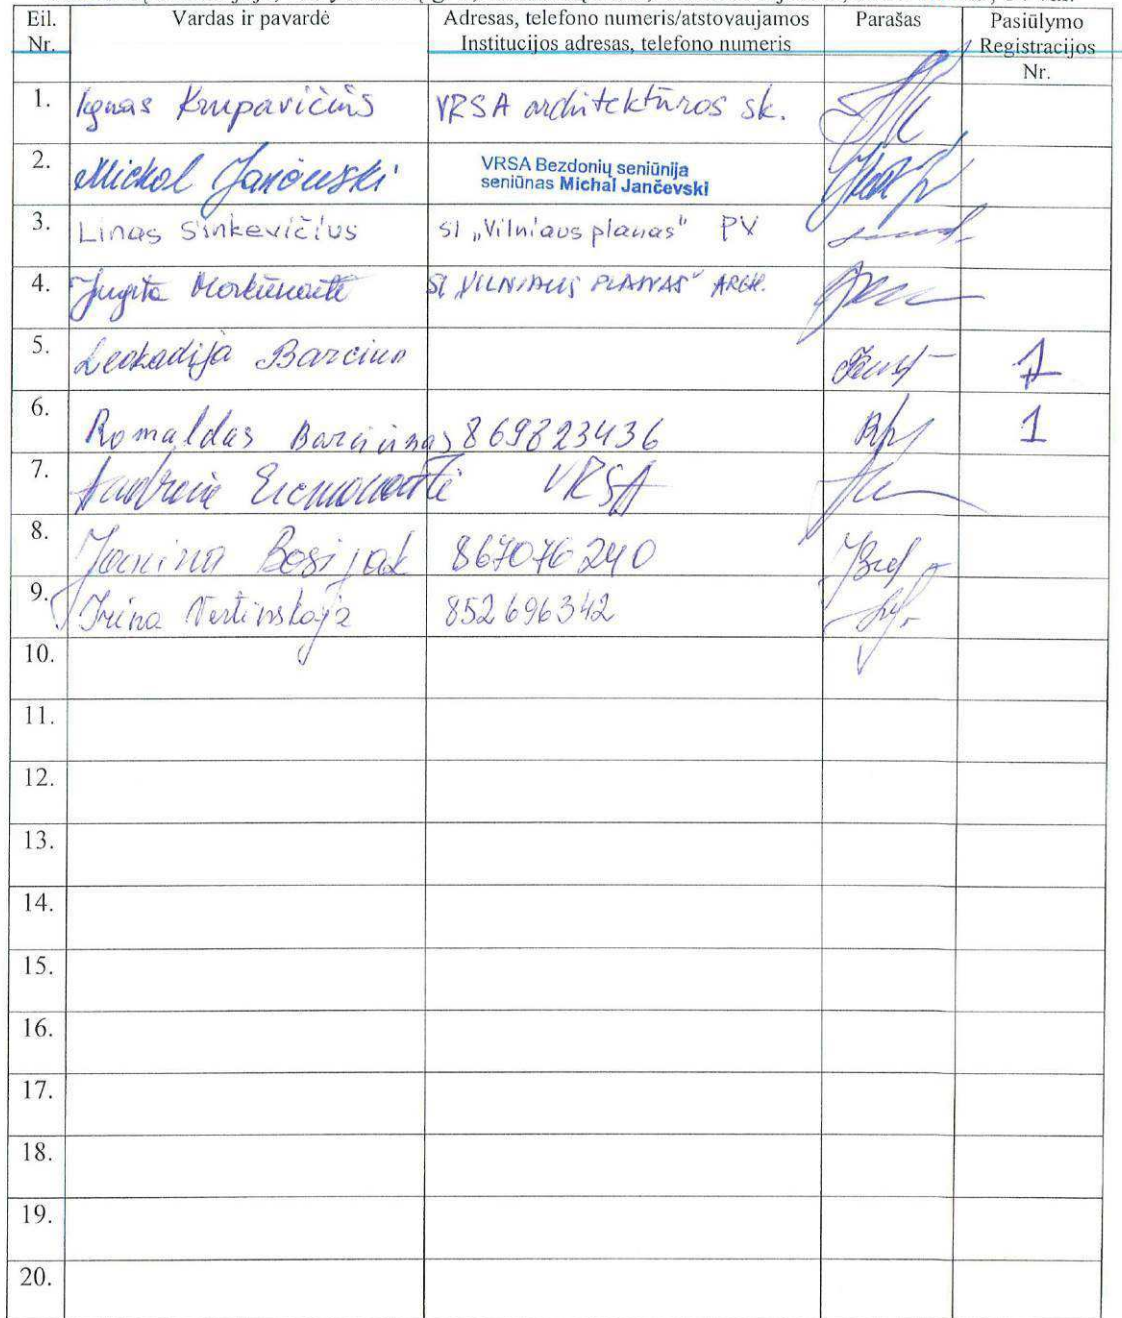 Eil. Nr. Vardas ir pavardė Adresas, telefono numeris/atstovaujamos Institucijos adresas, telefono numeris Parašas Pasiūlymo Registracijos Nr.
1. Ignas Krupavičius VRSA architektūros sk.
2. Michal Jančevski VRSA Bezdonių seniūnija
seniūnas Michal Jančevski
3. Linas Sinkevičius SĮ „Vilniaus planas" PV
4. Morkūnaitė SĮ VILNIAUS PLANAS" ARCH.
5. Leokadija Barciun 1
6. Romaldas Barciunas 869823436 1
7. VRSA
8. Janina Bosijak 867076240
9. Irina Vertinskaja 852696342
10.
11.
12.
13.
14.
15.
16.
17.
18.
19.
20.